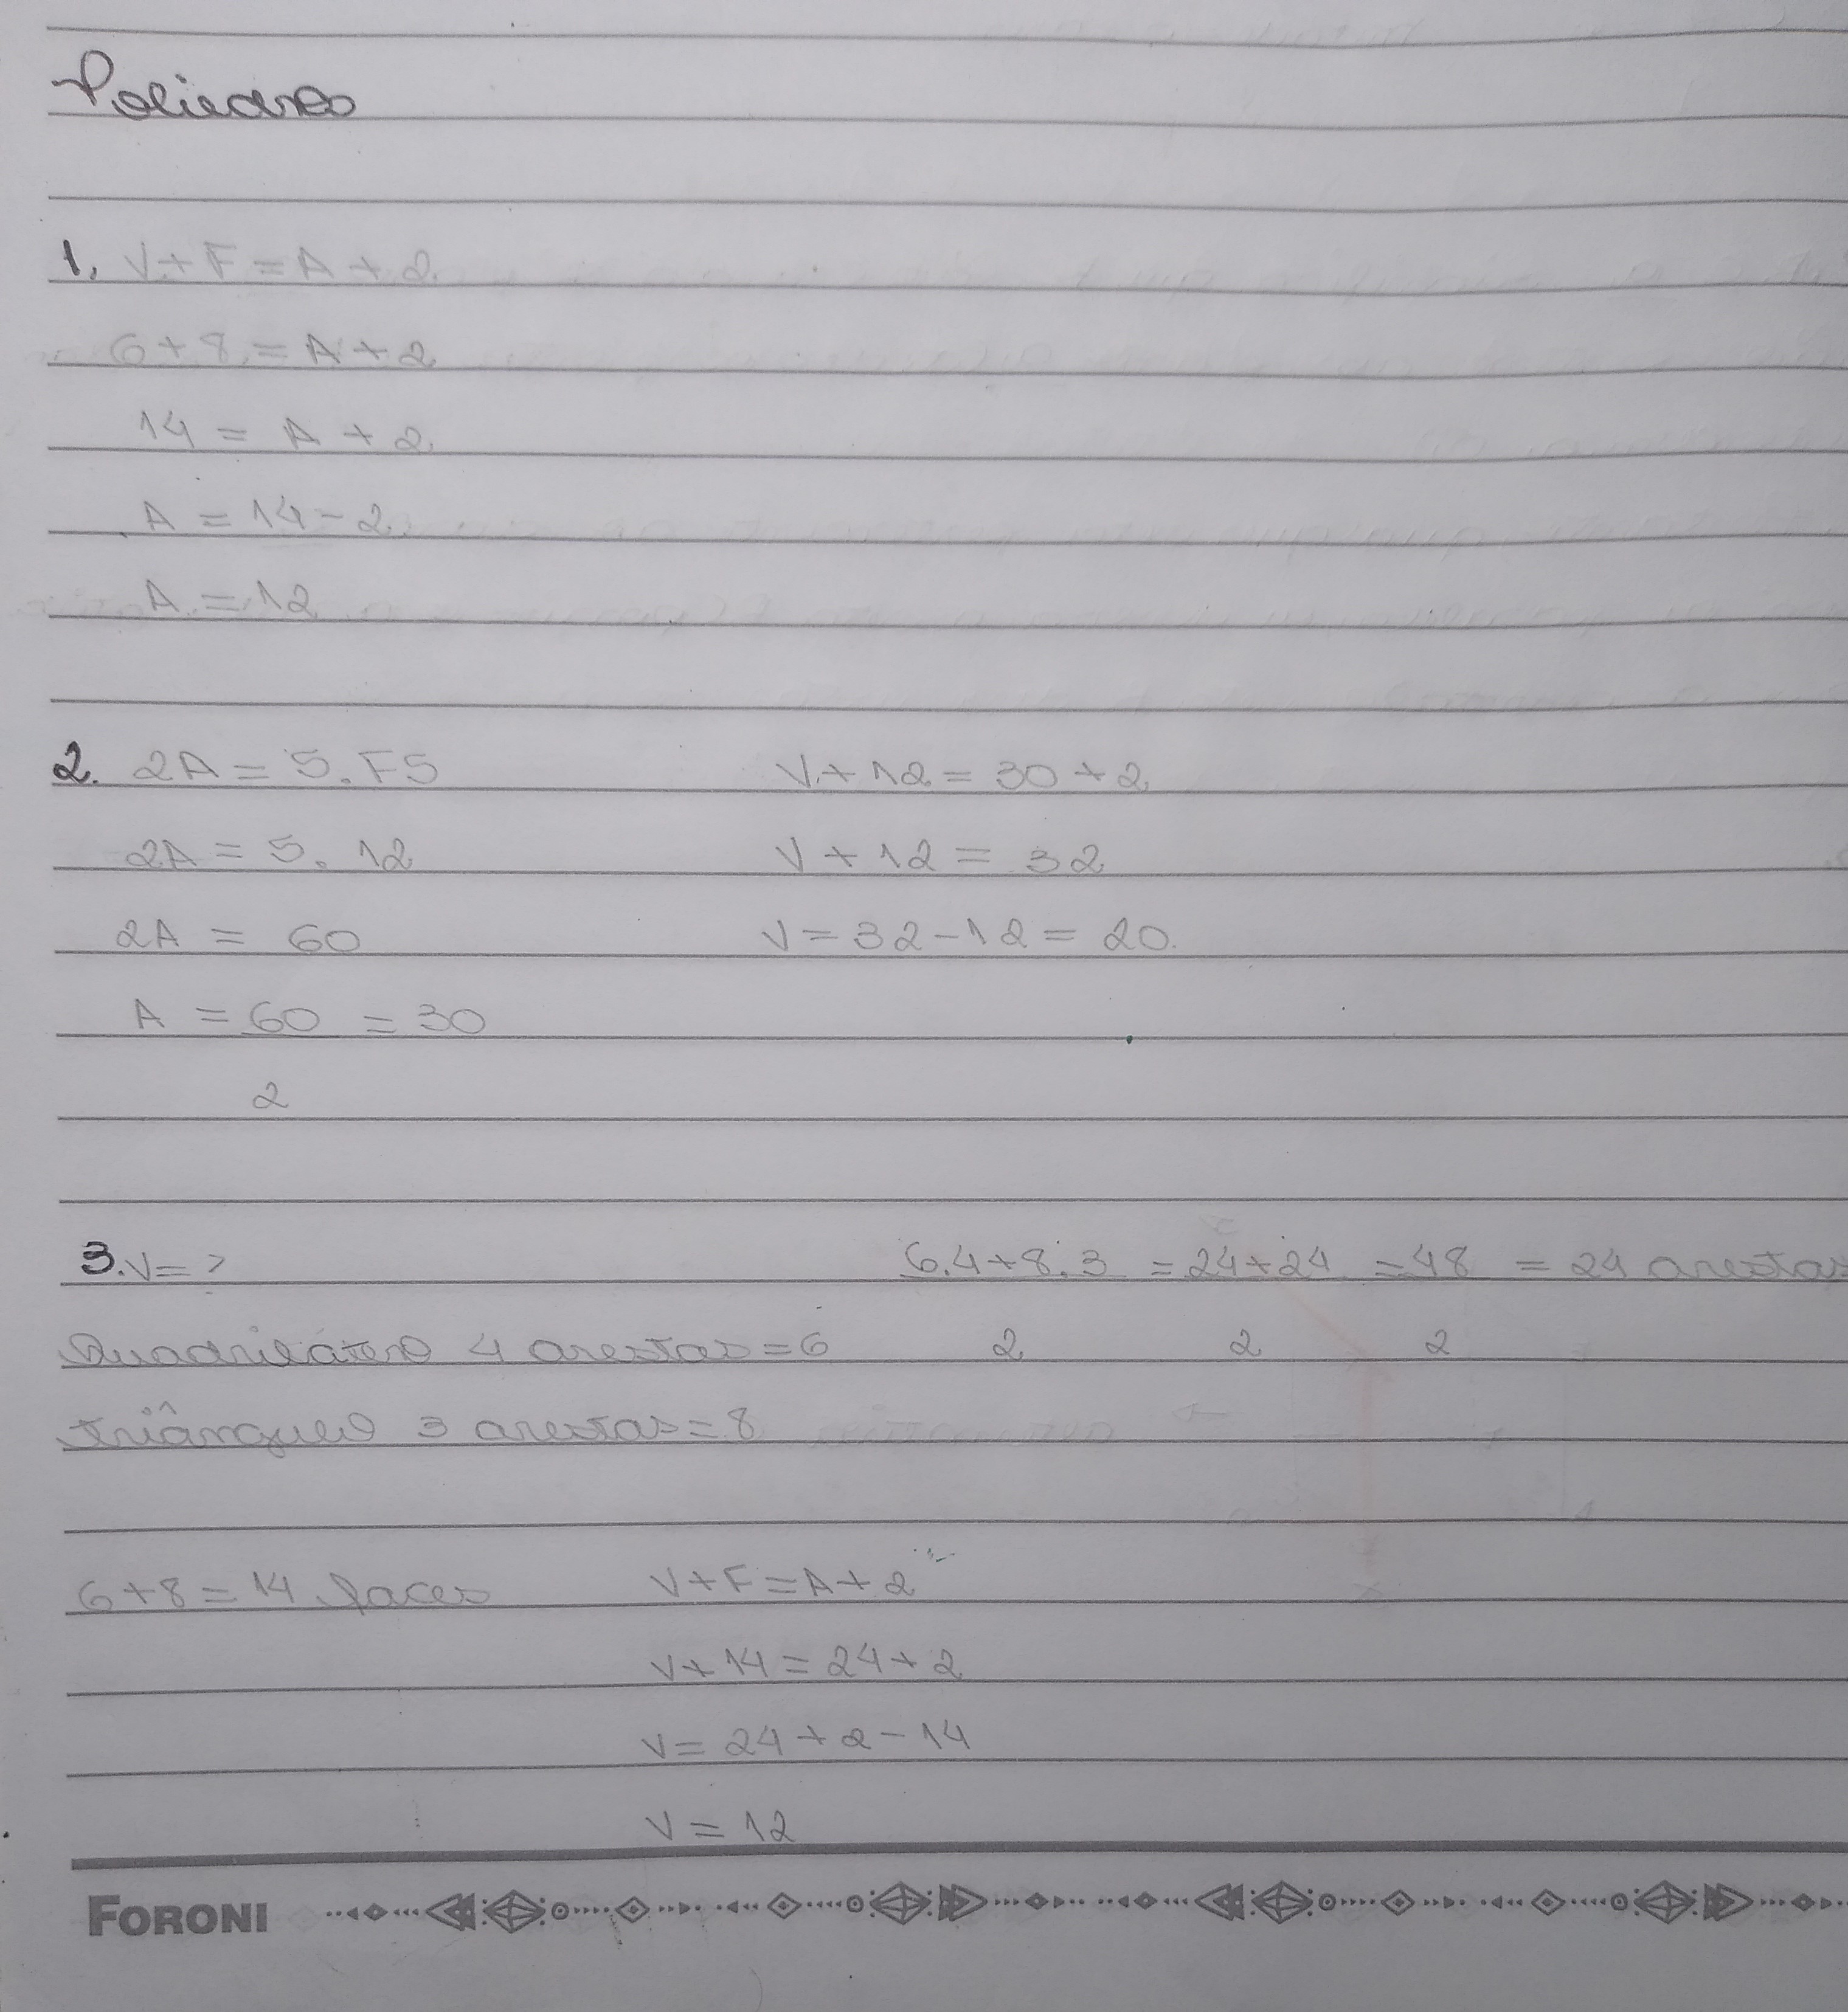 Poliedros
1. V + F = A + 2
6 + 8 = A + 2
14 = A + 2
A = 14 - 2
A = 12
2. 2A = 5 . F5
2A = 5 . 12
2A = 60
A = 60 = 30
2
V + 12 = 30 + 2
V + 12 = 32
V = 32 - 12 = 20
3. V = ?
Quadrilátero 4 arestas = 6
triângulo 3 arestas = 8
6.4 + 8.3 = 24 + 24 = 48 = 24 arestas
2 2 2
6 + 8 = 14 faces
V + F = A + 2
V + 14 = 24 + 2
V = 24 + 2 - 14
V = 12
FORONI